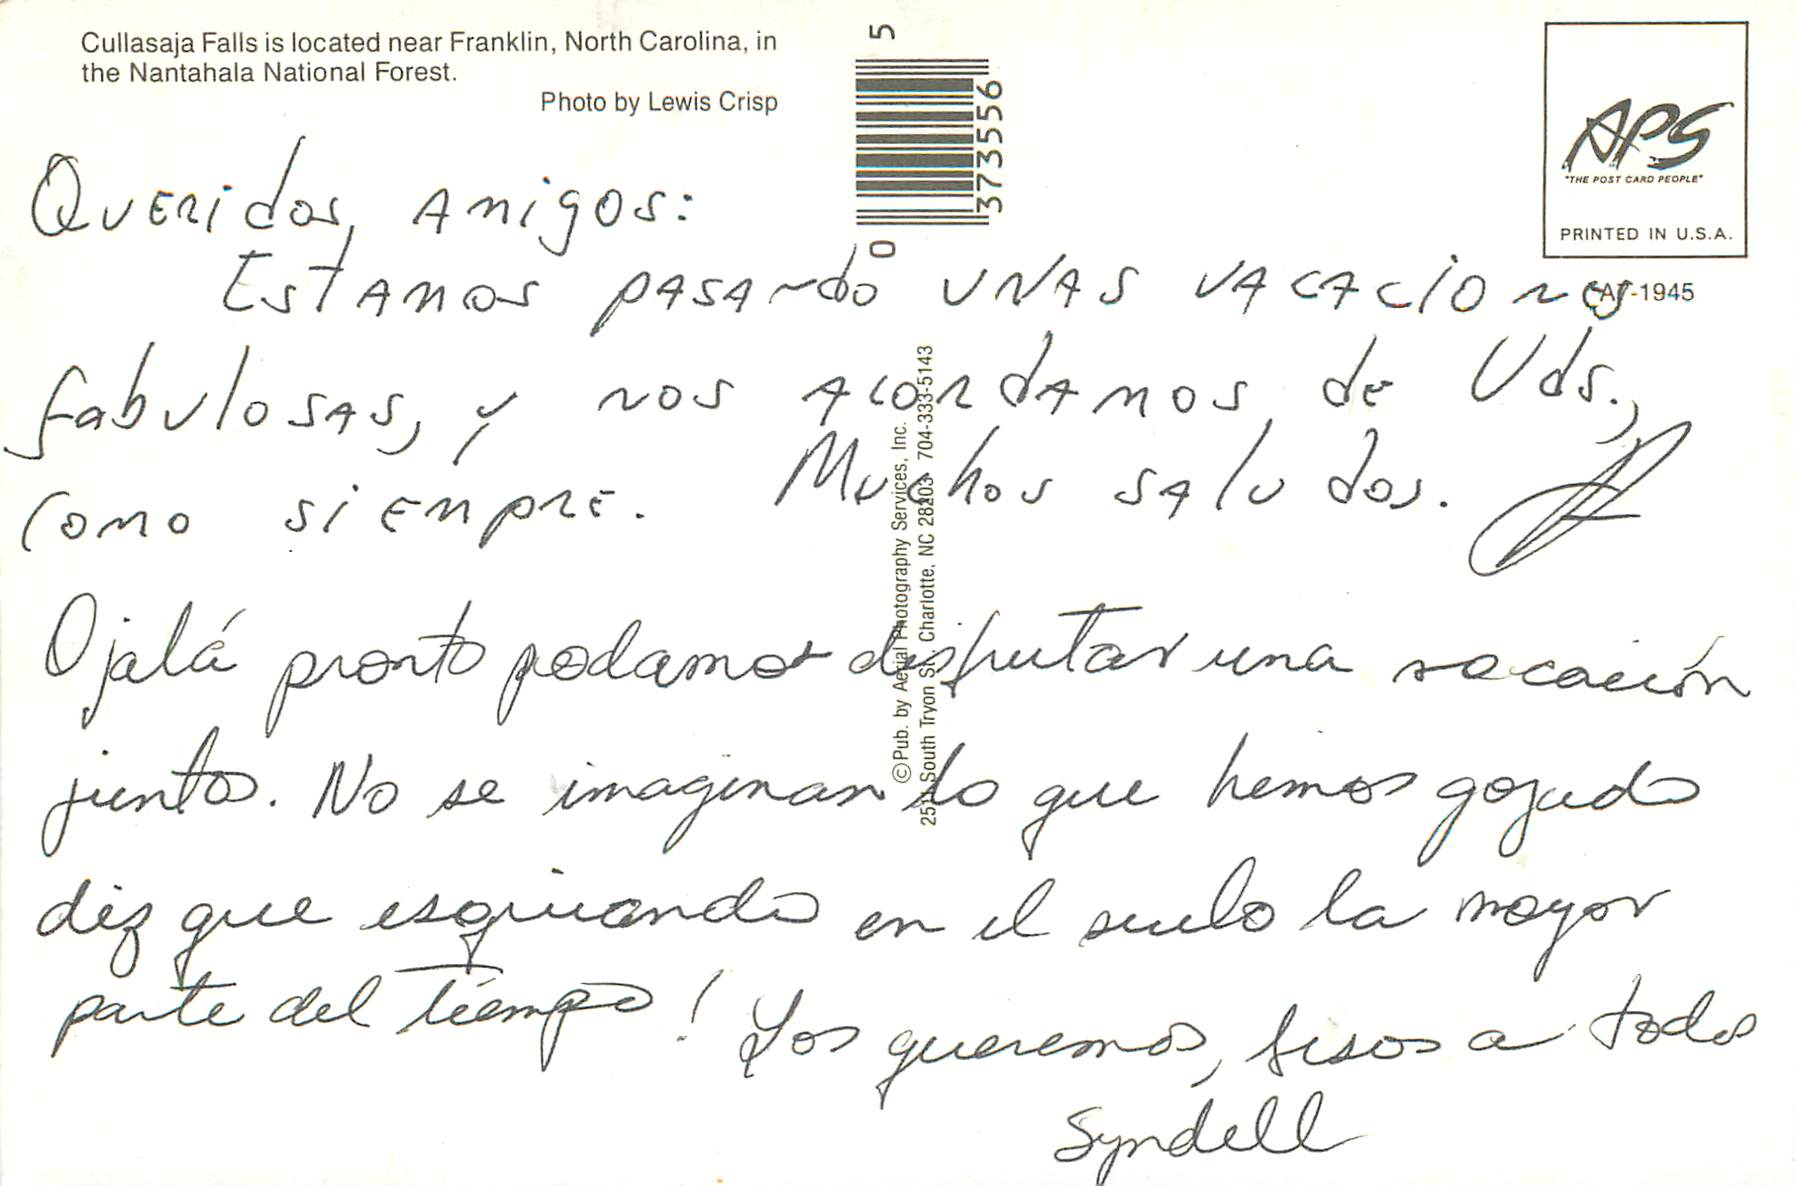 Cullasaja Falls is located near Franklin, North Carolina, in
the Nantahala National Forest.
Photo by Lewis Crisp
0 373556 5
APS
"THE POST CARD PEOPLE"
PRINTED IN U.S.A.
-1945
©Pub. by Aerial Photography Services, Inc.
2511 South Tryon St. Charlotte, NC 28203 704-333-5143
Queridos amigos:
Estamos pasando unas vacaciones
fabulosas, y nos acordamos de Uds.,
como siempre. Muchos saludos.
Ojalá pronto podamos disfrutar una vacación
juntos. No se imaginan lo que hemos gozado
diz que esquiando en el suelo la mayor
parte del tiempo! Los queremos, besos a todos
Syndell